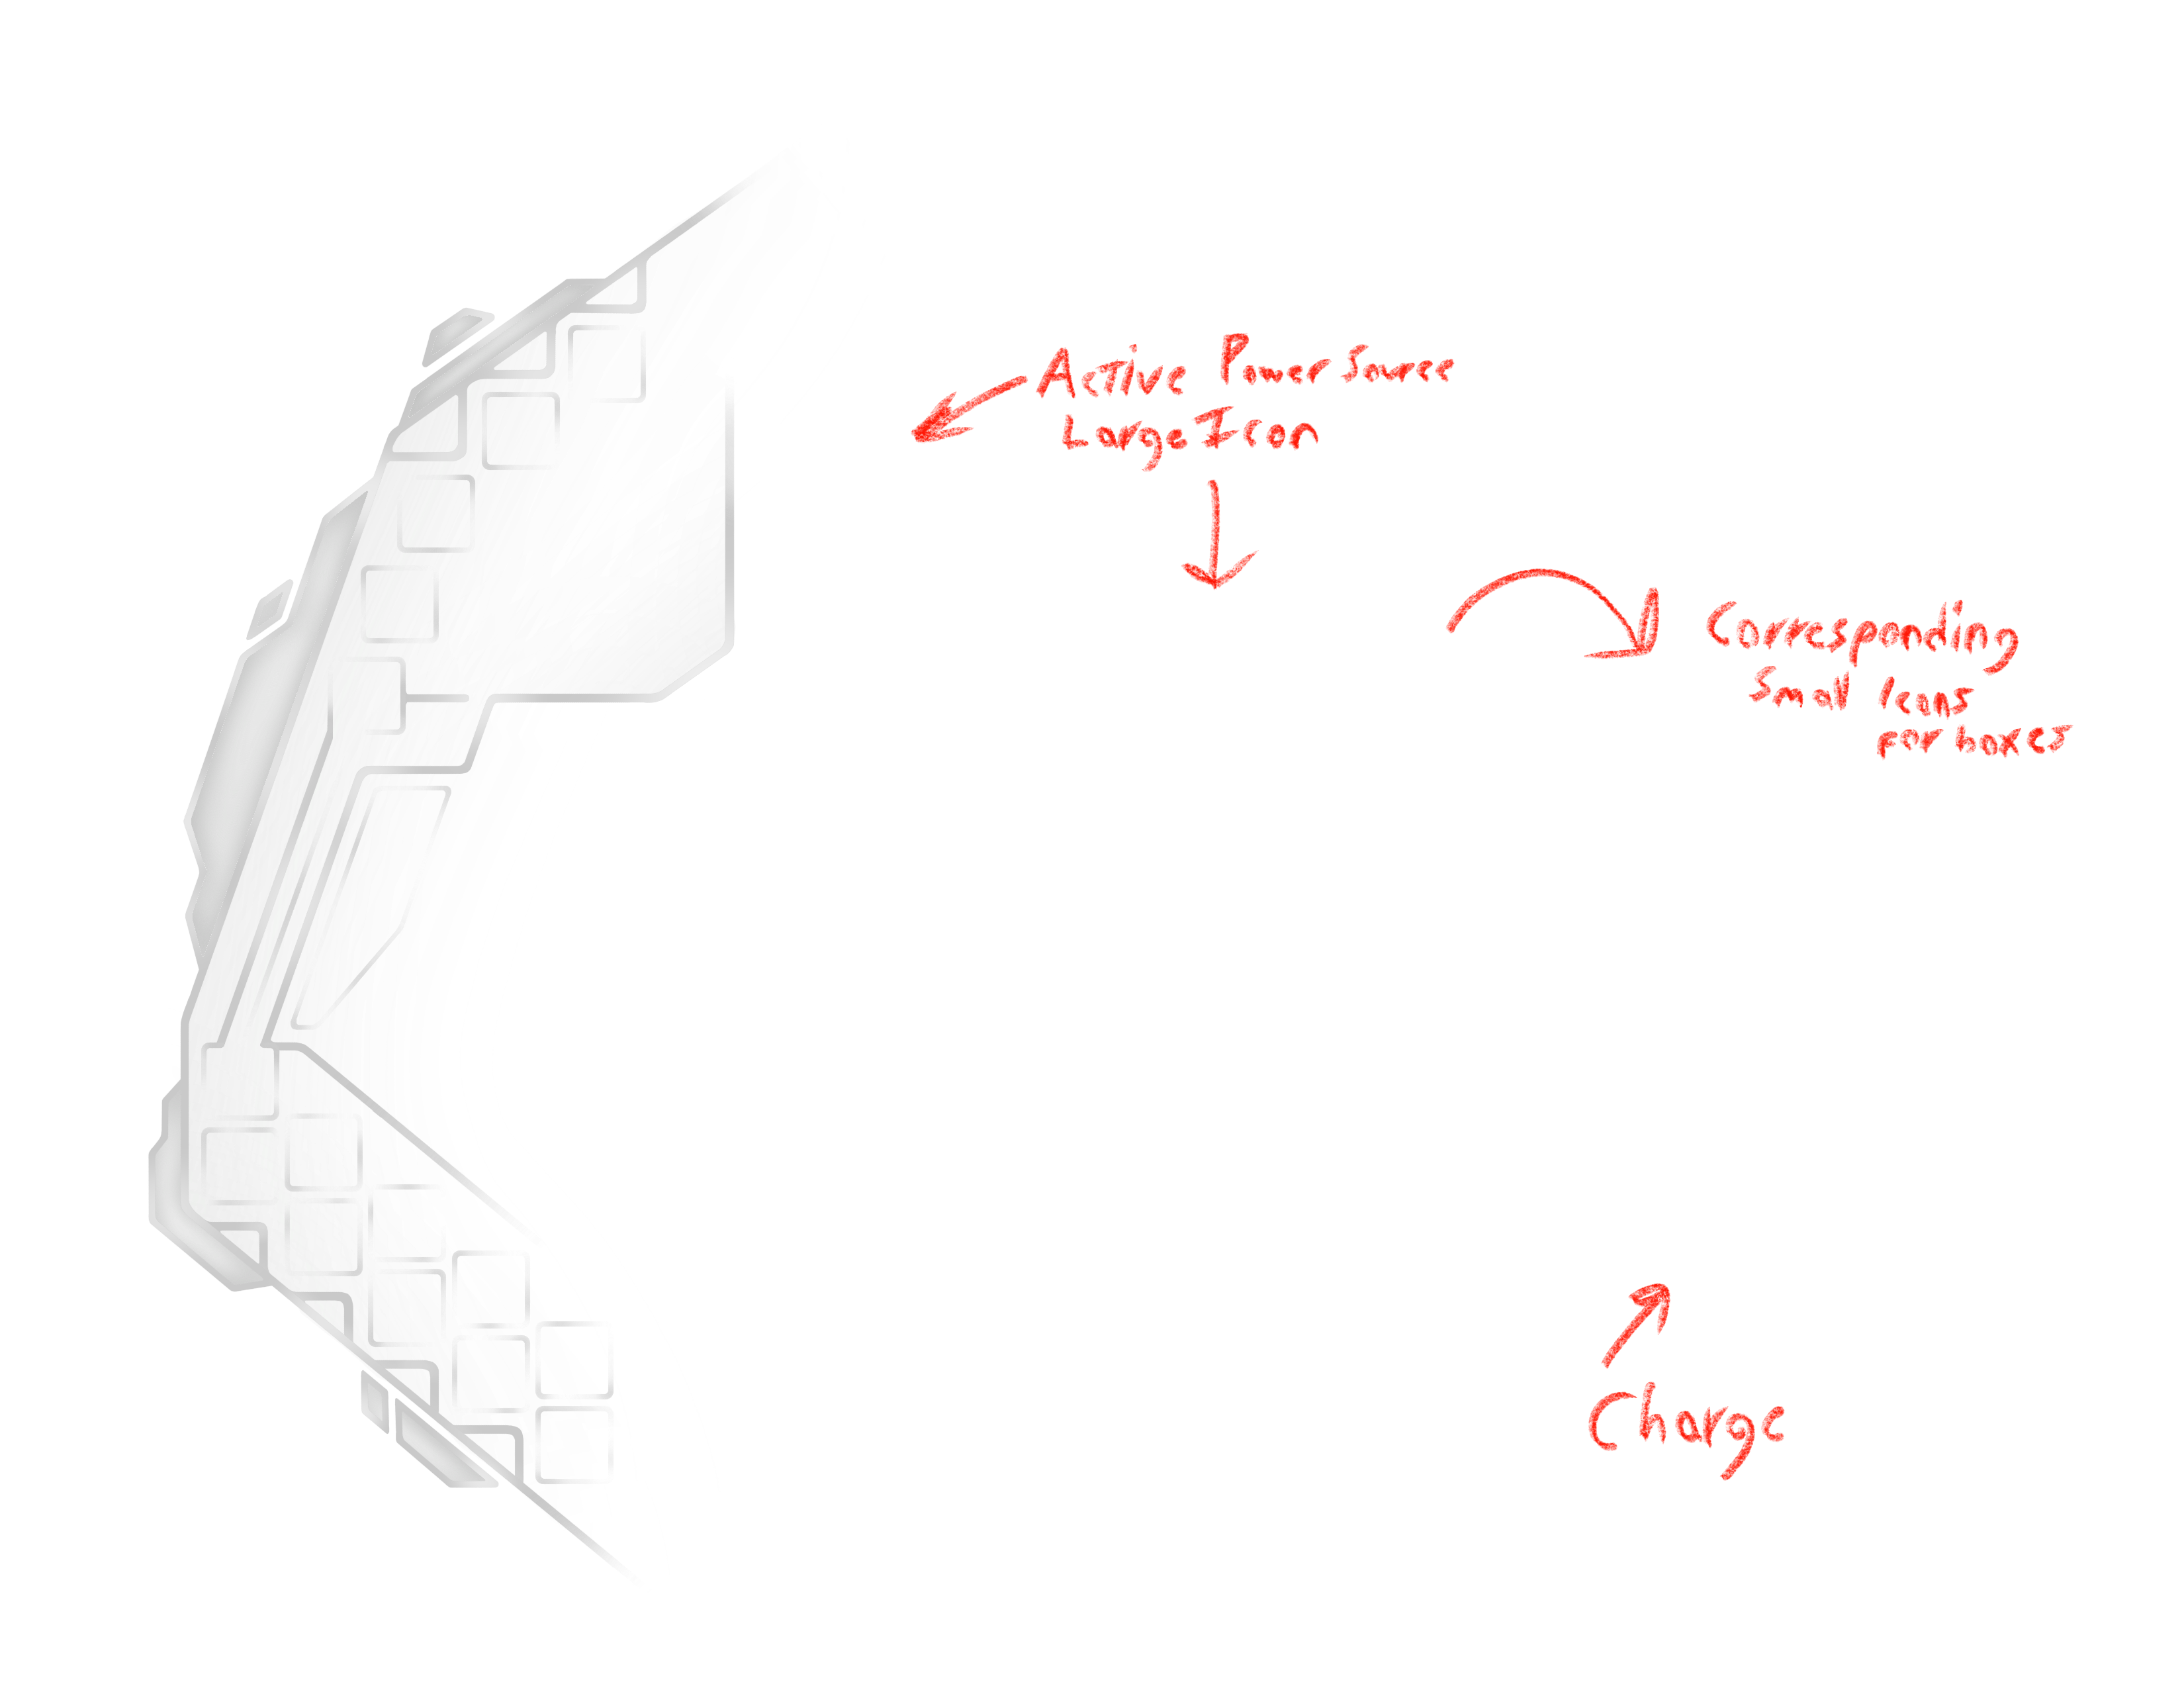 Active Power Source
Large Icon
Corresponding
Small Icons
for boxes
Charge